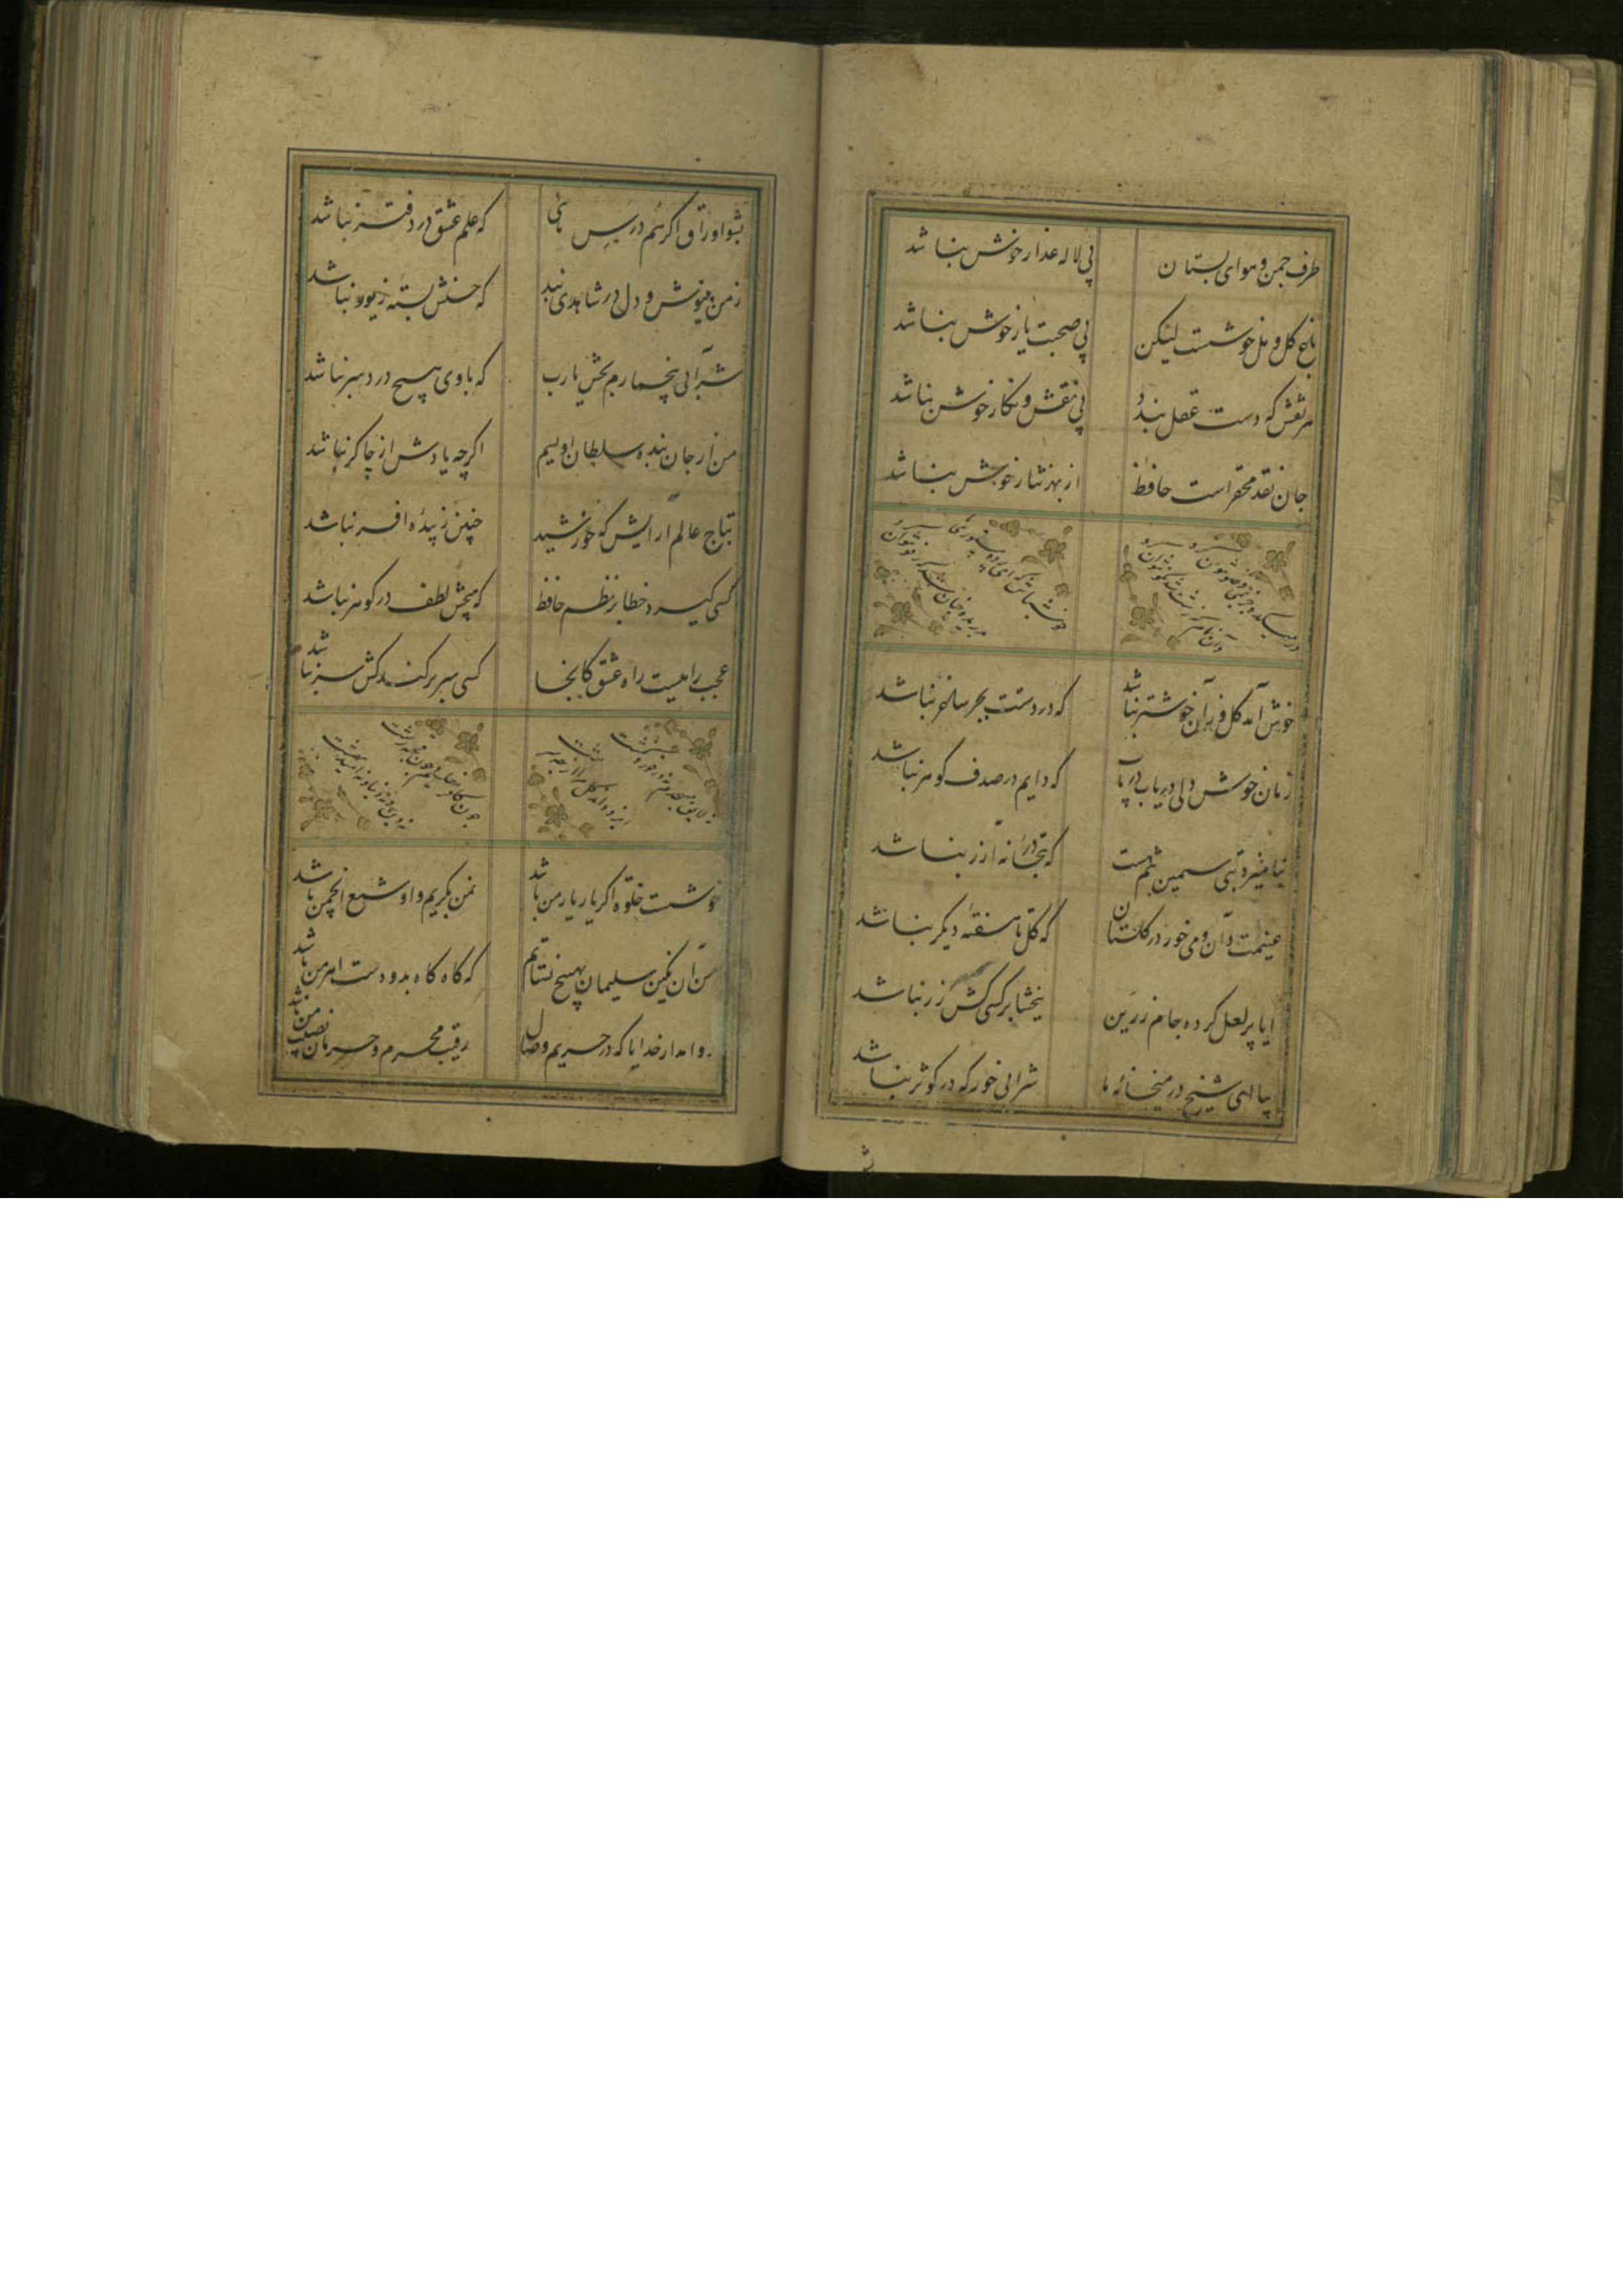 طرف چمن و هوای بستان
بی لاله عذار خوش نباشد
باغ گل و مل خوشست لیکن
بی صحبت یار خوش نباشد
هر نقش که دست عقل بندد
بی نقش و نگار خوش نباشد
جان نقد محقر است حافظ
از بهر نثار خوش نباشد
خوش آمد گل وزان خوشتر نباشد
که در دستت بجز ساغر نباشد
زمان خوش دلی دریاب دریاب
که دایم در صدف گوهر نباشد
بتی سیمین تنم هست
که در بتخانه آزر نباشد
غنیمت دان و می خور در گلستان
که گل تا هفته دیگر نباشد
ایا پر لعل کرده جام زرین
ببخشا بر کسی کش زر نباشد
بیا ای شیخ در میخانه ما
شرابی خور که در کوثر نباشد
بشو اوراق اگر هم درس مائی
که علم عشق در دفتر نباشد
ز من بنیوش و دل در شاهدی بند
که حسنش بسته زیور نباشد
شرابی بی خمارم بخش یا رب
که با وی هیچ درد سر نباشد
من از جان بنده سلطان اویسم
اگرچه یادش از چاکر نباشد
بتاج عالم آرایش که خورشید
چنین زیبنده افسر نباشد
کسی گیرد خطا بر نظم حافظ
که هیچش لطف در گوهر نباشد
عجب راهیست راه عشق کانجا
کسی سر برکند کش سر نباشد
خوشست خلوه اگر یار یار من باشد
نه من بگریم و او شمع انجمن باشد
من آن نگین سلیمان بهیچ نستانم
که گاه گاه بدو دست اهرمن باشد
روا مدار خدایا که در حریم وصال
رقیب محرم و حرمان نصیب من باشد